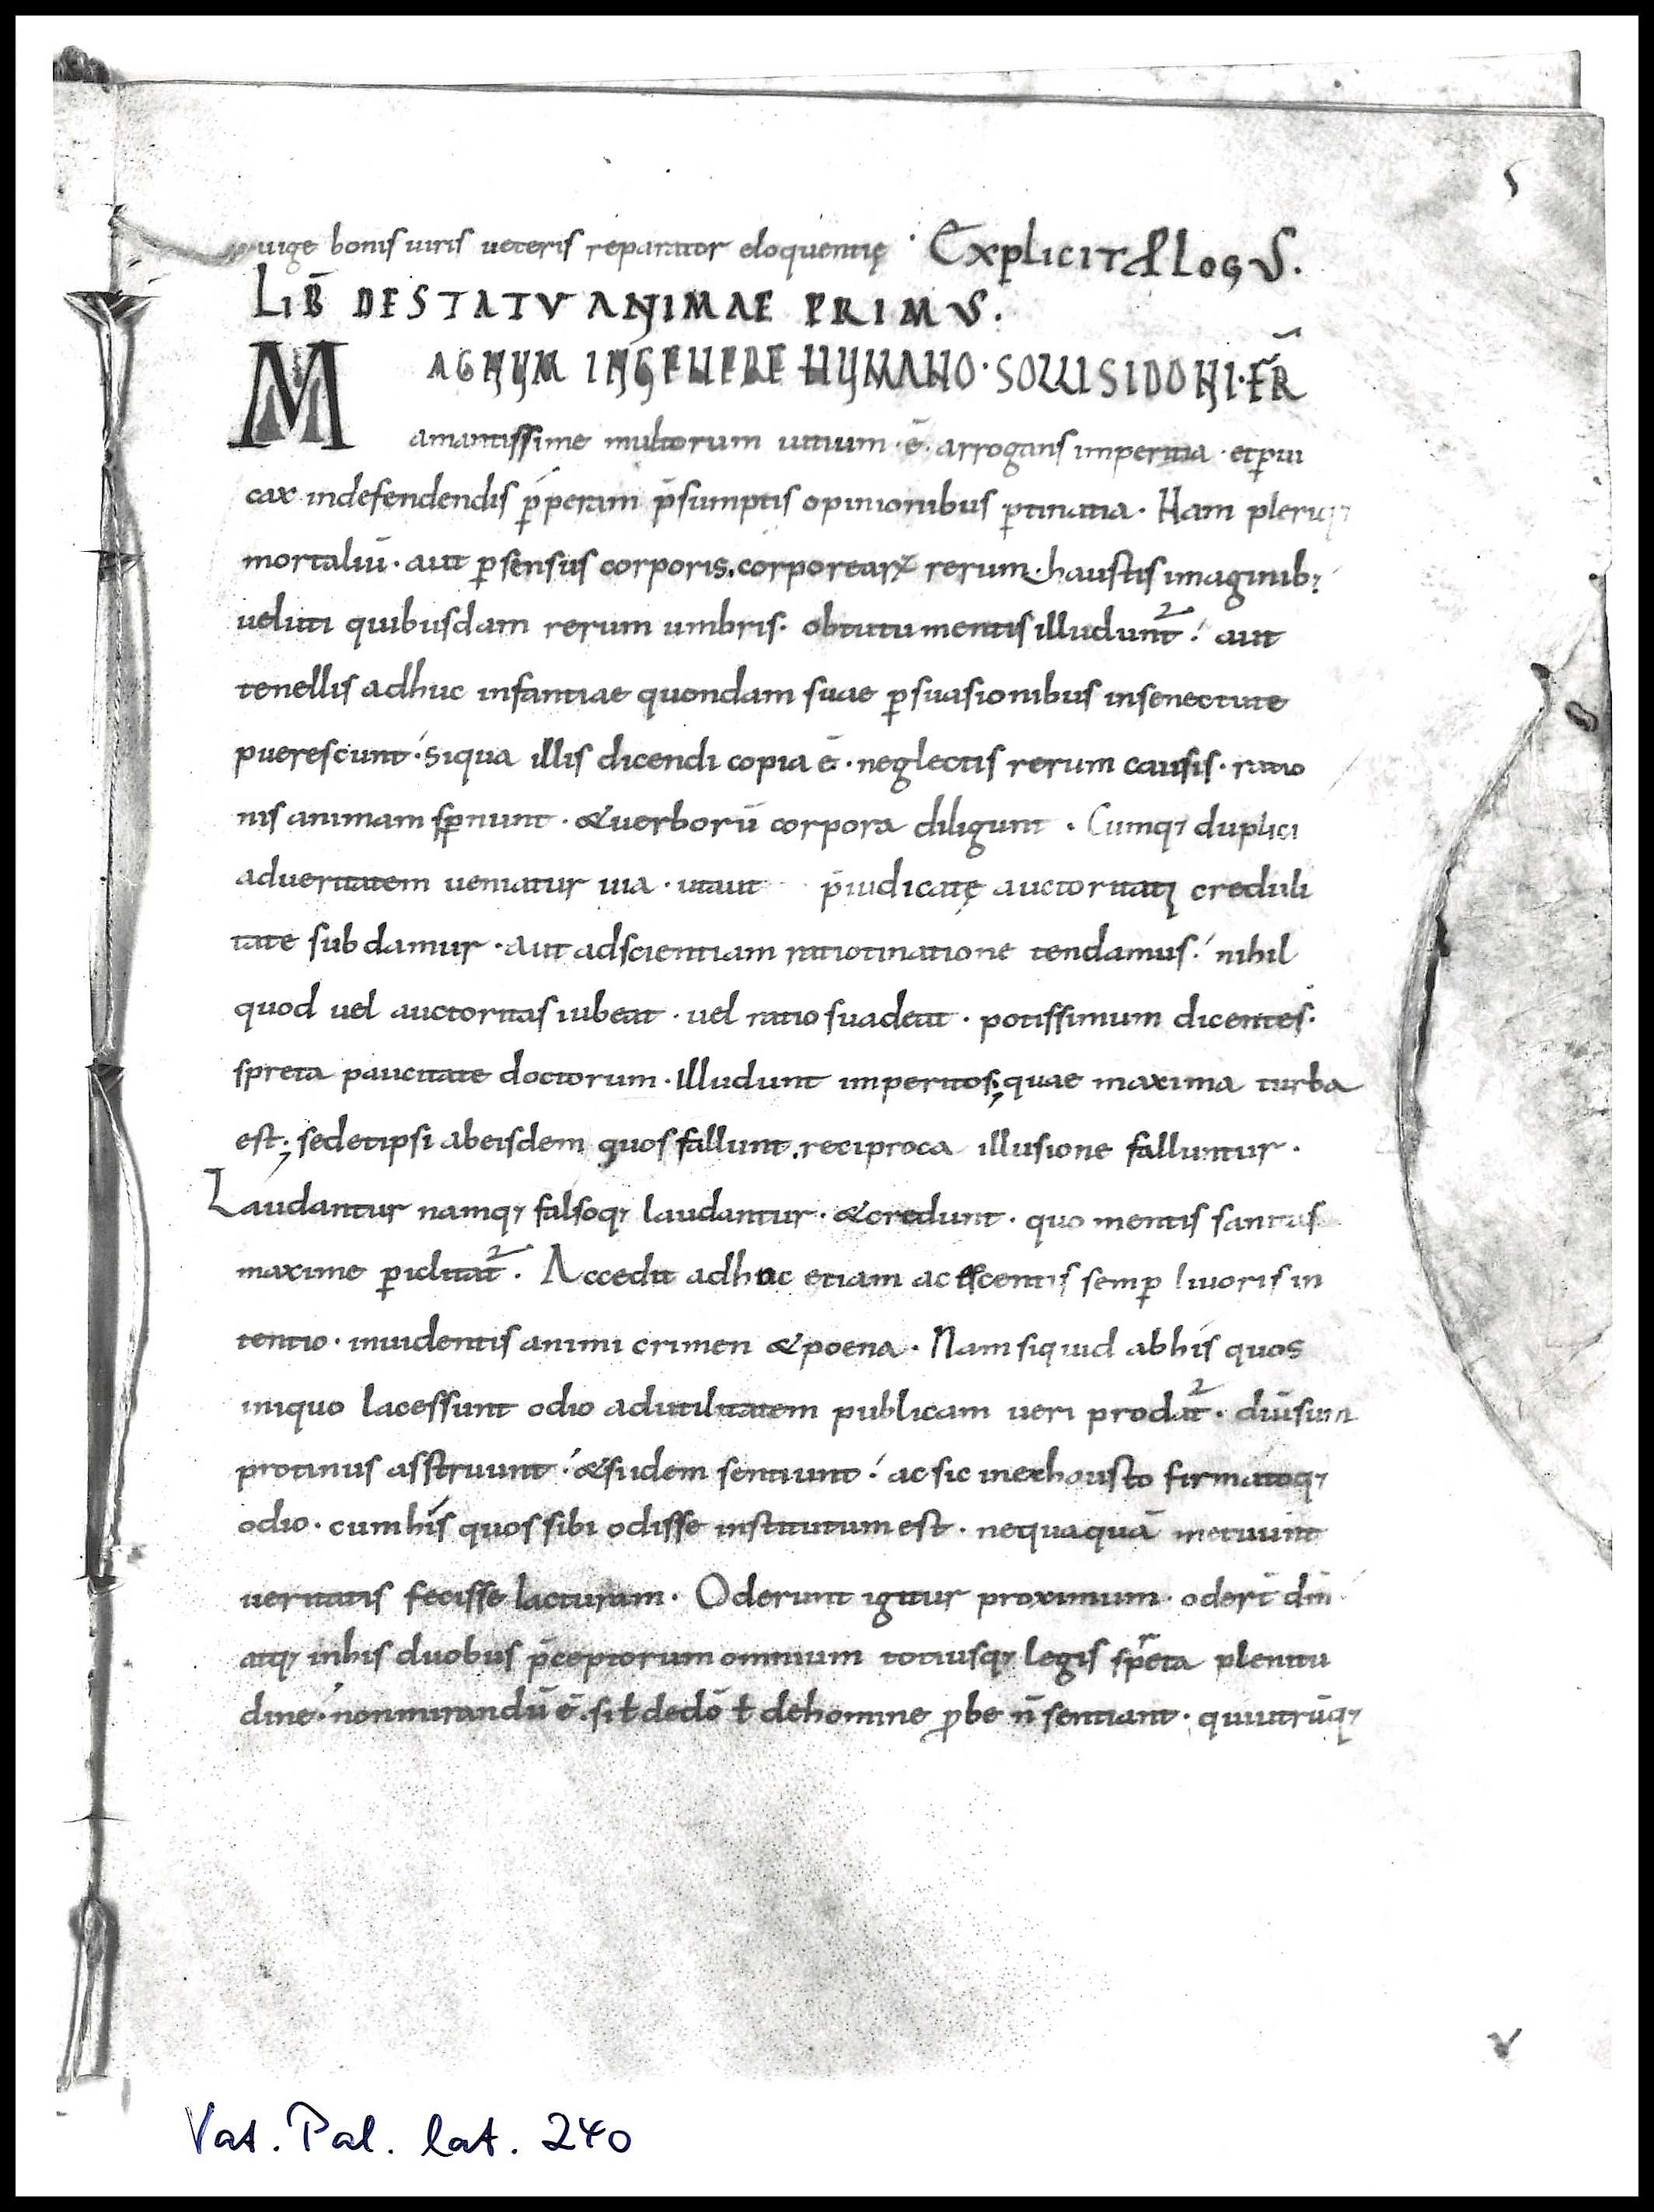 uige bonis uiris ueteris reparator eloquentię · Explicit &LogꝰS.
LIB̄ DE STATV ANIMAE PRIMVS.
MAGNUM INGENERE HUMANO · SOLLI SIDONI · FR̄
amantissime multorum uitium · ē · arrogans imperitia · et ꝑui
cax indefendendis ꝑperam p̄sumptis opinionibus ꝑtinatia · Nam pleriq;
mortaliū · aut ꝑ sensus corporis. corporearꝝ rerum · haustis imaginib;
ueluti quibusdam rerum umbris · obtutu mentis illudunt² · aut
tenellis adhuc infantiae quondam suae ꝑsuasionibus insenectute
puerescunt · siqua illis dicendi copia ē · neglectis rerum causis · ratio
nis animam sꝑnunt · & uerborū corpora diligunt · Cumq; duplici
adueritatem ueniatur uia · utaut p̄iudicatę auctoritatis creduli
tate subdamur · aut adscientiam ratiotinatione tendamus · nihil
quod uel auctoritas iubeat · uel ratio suadeat · potissimum dicentes ·
spreta paucitate doctorum · illudunt imperitos; quae maxima turba
est; sedetipsi abeisdem quos fallunt. reciproca illusione falluntur ·
Laudantur namq; falsoq; laudantur · & credunt · quo mentis sanitas
maxime ꝑiclitat² · Accedit adhuc etiam acescentis semꝑ liuoris in
tentio · inuidentis animi crimen & poena · Nam siquid abhis quos
iniquo lacessunt odio adutilitatem publicam ueri prodat² · diūsum
protinus asstruunt · & sidem sentiunt · ac sic inexhausto firmatoq;
odio · cumhis quos sibi odisse institutum est · nequaquā metuunt
ueritatis fecisse iacturam · Oderunt igitur proximum · oderī dm̄
atq; inhis duobus p̄ceptorum omnium totiusq; legis spreta plenitu
dine · nonmirandū ē · si ł dedō ł dehomine ꝓbe n̄ sentiant · quiutrūq;
Vat. Pal. lat. 240